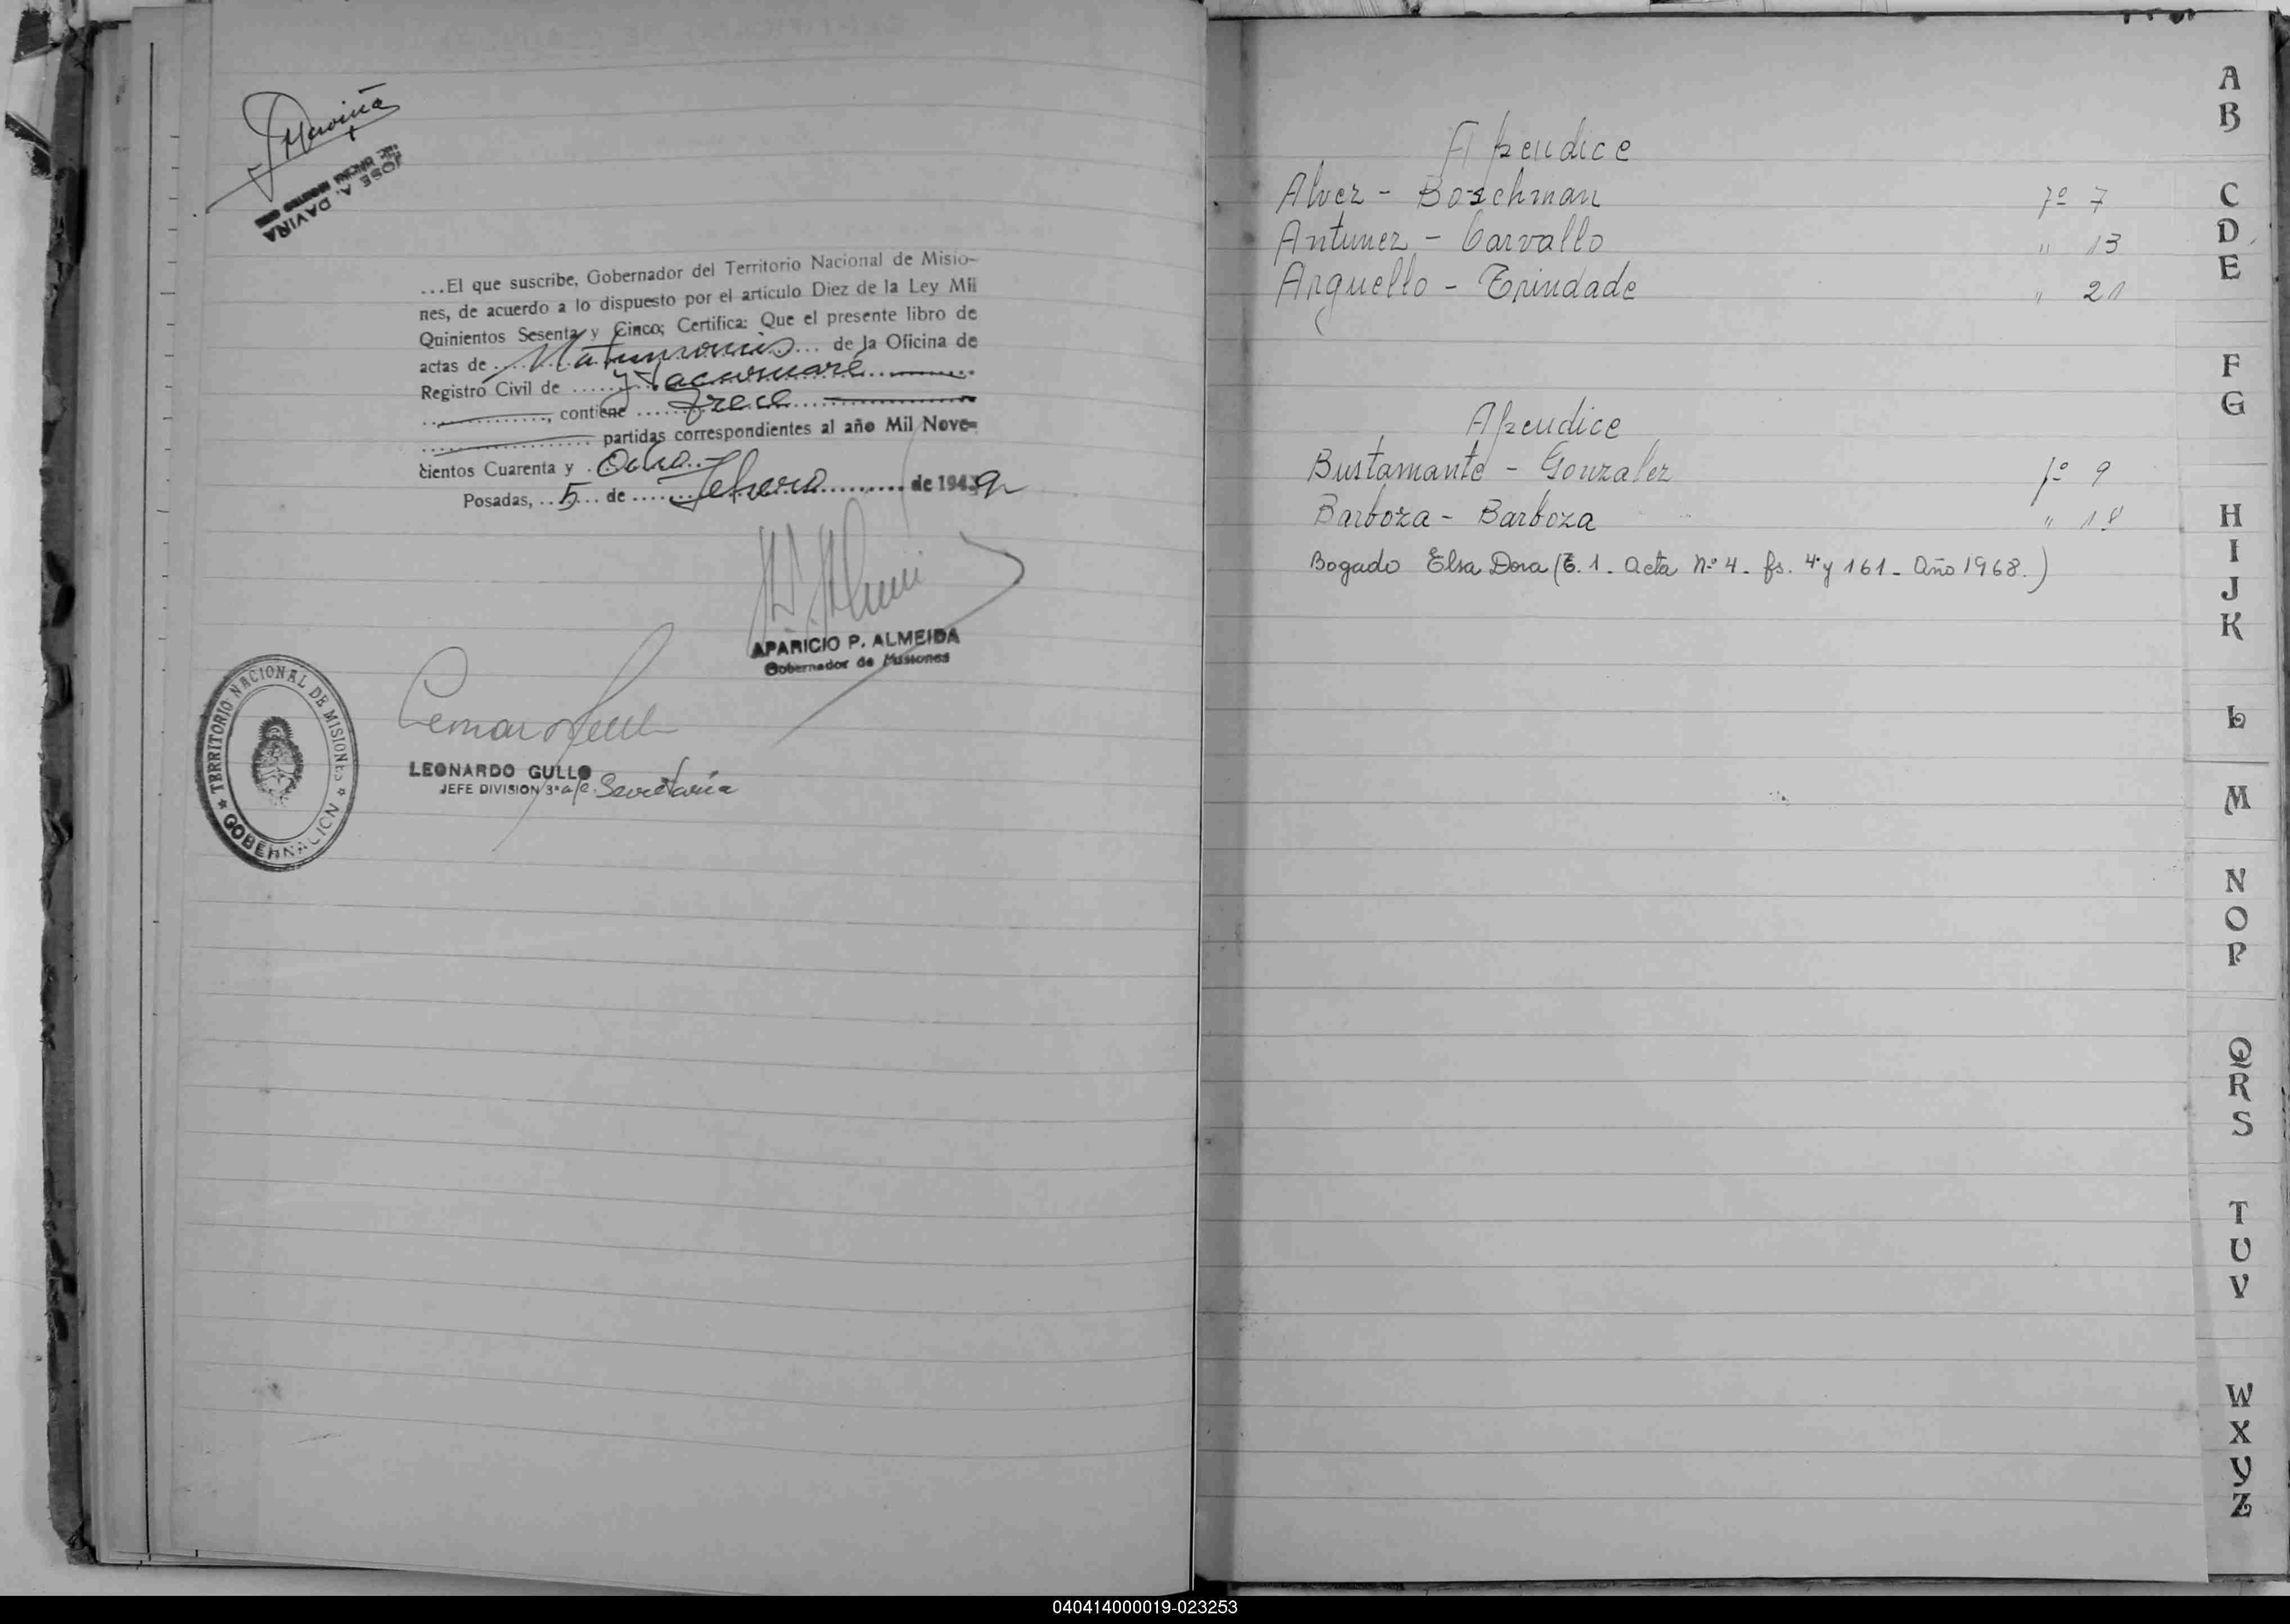 JOSE A. DAVIÑA
...El que suscribe, Gobernador del Territorio Nacional de Misio-
nes, de acuerdo a lo dispuesto por el artículo Diez de la Ley Mil
Quinientos Sesenta y Cinco; Certifica: Que el presente libro de
actas de ... Matrimonios ... de la Oficina de
Registro Civil de ... Yacaruaré ...
..., contiene ... trece ...
... partidas correspondientes al año Mil Nove-
cientos Cuarenta y . Ocho..-
Posadas, ... 5 ... de ... febrero ... de 1949
APARICIO P. ALMEIDA
Gobernador de Misiones
TERRITORIO NACIONAL DE MISIONES
GOBERNACION
LEONARDO GULLO
JEFE DIVISION 3ª a/c. Secretaría
Apendice
Alvez - Boschman fº 7
Antunez - Carvallo " 13
Arguello - Trindade " 21
Apendice
Bustamante - Gonzalez fº 9
Barboza - Barboza " 18
Bogado Elsa Dora (T. 1 - Acta Nº 4 - fs. 4 y 161 - Año 1968.)
A
B
C
D
E
F
G
H
I
J
K
L
M
N
O
P
Q
R
S
T
U
V
W
X
Y
Z
040414000019-023253